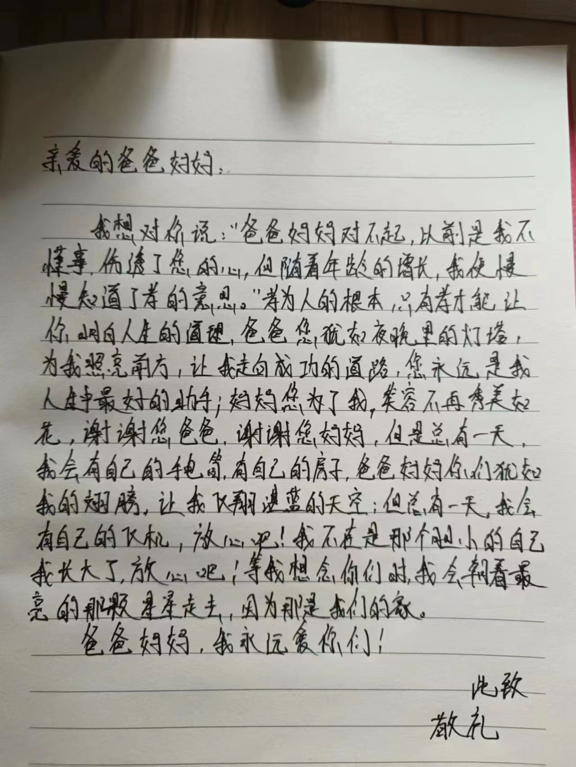 亲爱的爸爸妈妈:
我想对你说:"爸爸妈妈对不起,以前是我不
懂事,伤透了您的心,但随着年龄的增长,我便慢
慢知道了孝的意思。"孝为人的根本,只有孝才能让
你明白人生的道理,爸爸您犹如夜晚里的灯塔,
为我照亮前方,让我走向成功的道路,您永远是我
人生中最好的助手;妈妈您为了我,笑容不再秀美如
花,谢谢您爸爸,谢谢您妈妈,但是总有一天,
我会有自己的手电筒,有自己的房子,爸爸妈妈你们犹如
我的翅膀,让我飞翔湛蓝的天空;但总有一天,我会
有自己的飞机,放心吧!我不在是那个胆小的自己
我长大了,放心吧!等我想念你们时,我会朝着最
亮的那颗星星走去,因为那是我们的家。
爸爸妈妈,我永远爱你们!
此致
敬礼